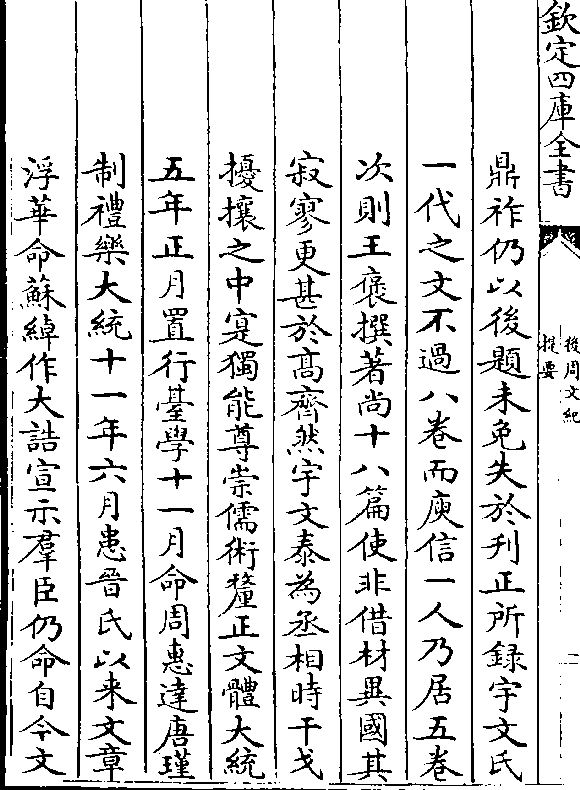 欽定四庫全書
後周文紀
提要
二
鼎祚仍以後題未免失於刋正所録宇文氏
一代之文不過八卷而庾信一人乃居五卷
次則王褒撰著尚十八篇使非借材異國其
寂寥更甚於髙齊然宇文泰為丞相時干戈
擾攘之中寔獨能尊崇儒術釐正文體大統
五年正月置行臺學十一月命周惠達唐瑾
制禮樂大統十一年六月患晉氏以来文章
浮華命蘇綽作大誥宣示羣臣仍命自今文